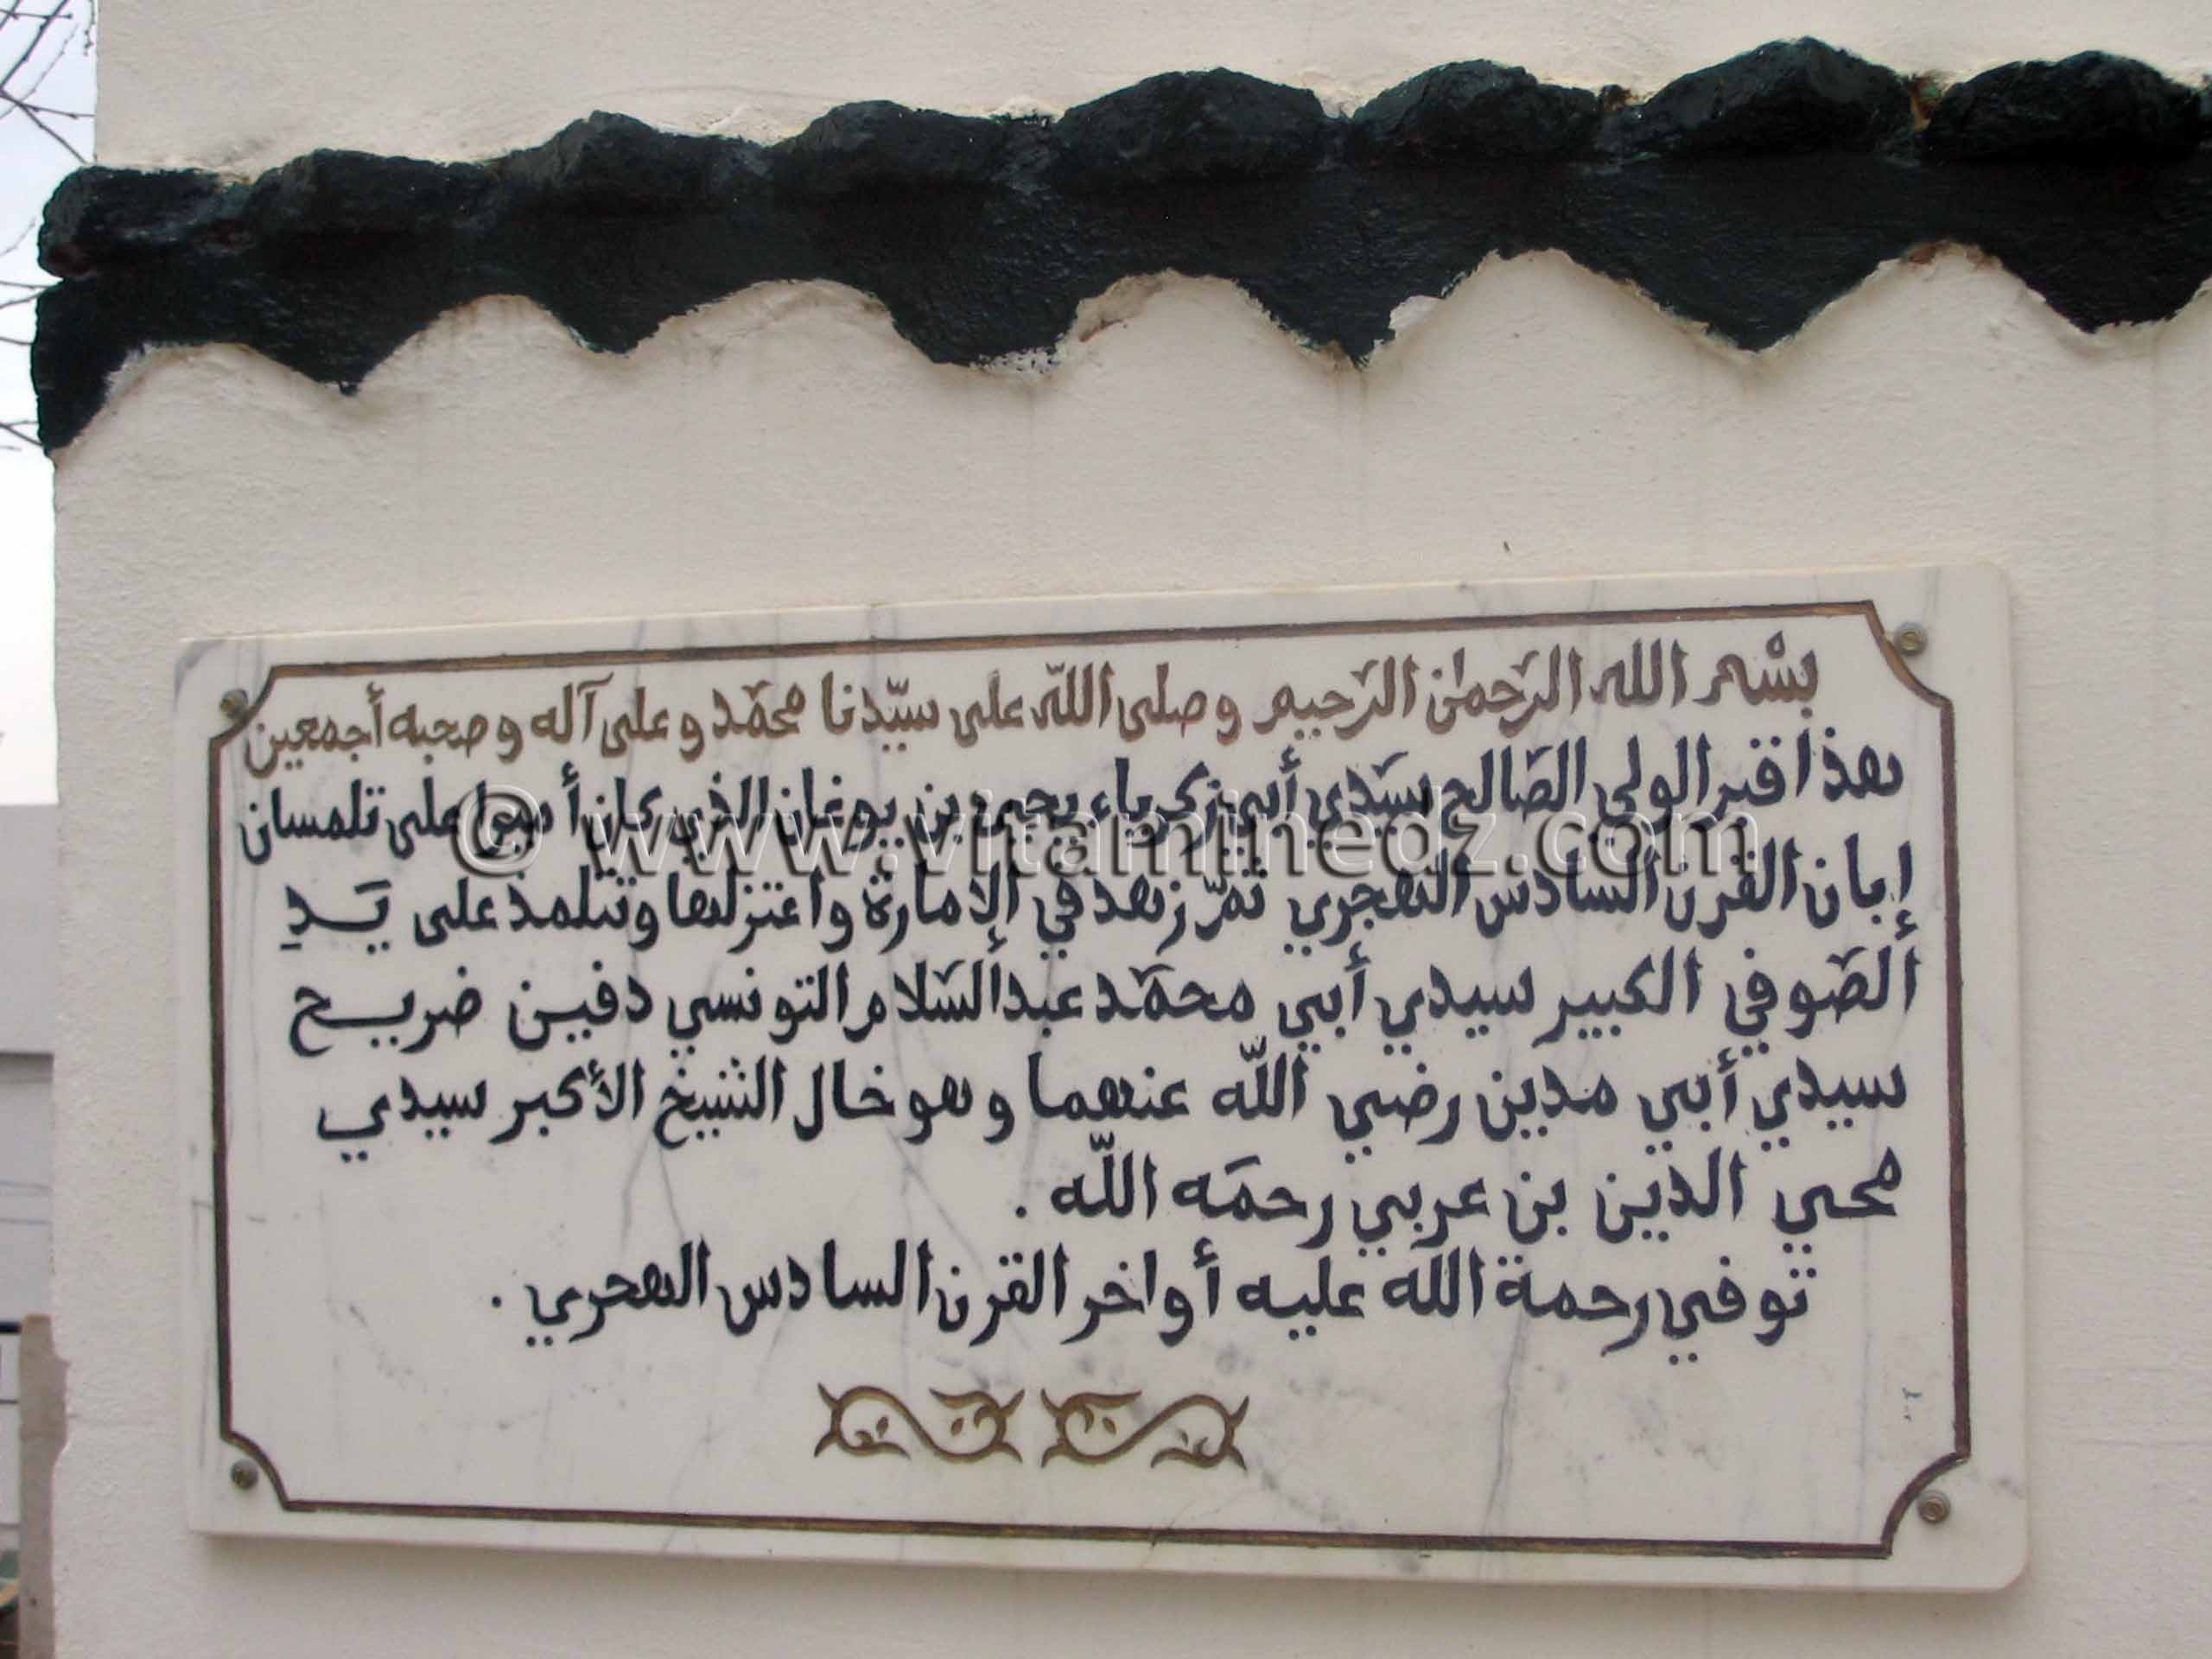 بسْم الله الرَحمٰن الرَحيم وصلى اللّه على سيّدنا محمَد وعلى آله وصحبه أجمعين
هذا قبر الولي الصَالح سيَدي أبي زكرياء يحيى بن يوغان الذي كان أميرا على تلمسان
إبان القرن السادس الهجري ثمّ زهد في الإمارة واعتزلها وتتلمذ على يَــدِ
ألصَوفي الكبير سيدي أبي محمَد عبد ألسَلام التونسي دفين ضريــح
سيدي أبي مدين رضي اللّه عنهما وهو خال الشيخ الأكبر سيدي
محي الدين بن عربي رحمَه اللّه .
توفي رحمة الله عليه أواخر القرن السادس الهجري .
© www.vitaminedz.com